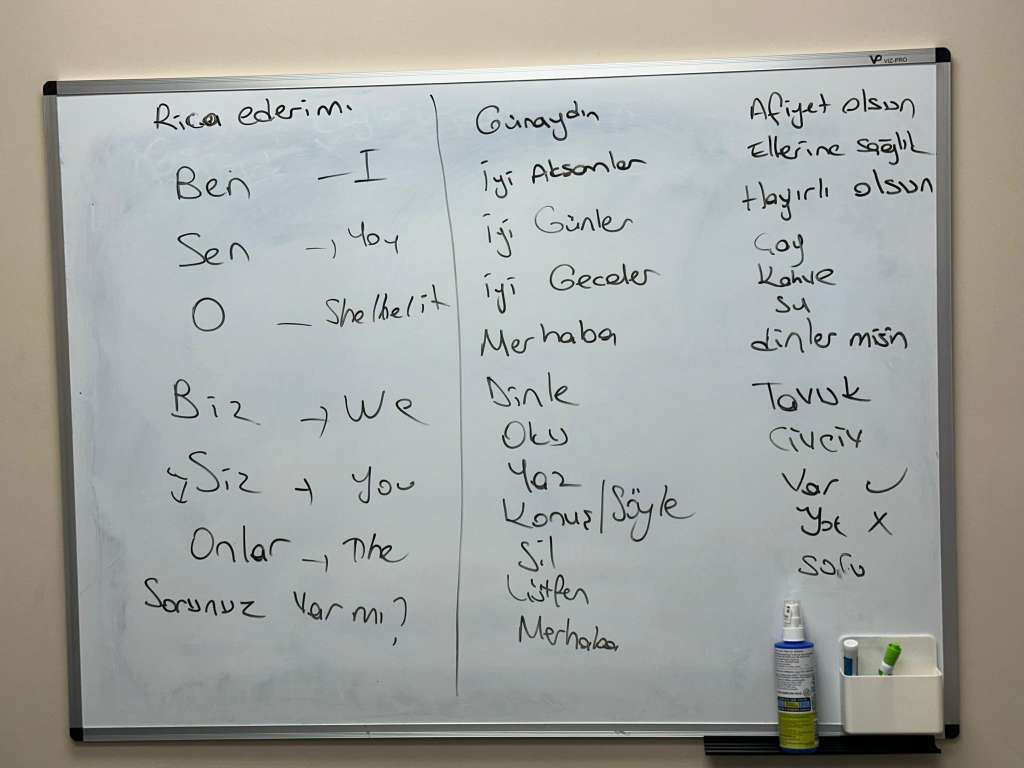 VP VIZ-PRO
Rica ederim.
Ben – I
Sen → You
O – She/he/it
Biz → We
Siz → you
Onlar → The
Sorunuz var mı?
Günaydın
İyi Akşamlar
İyi Günler
İyi Geceler
Merhaba
Dinle
Oku
Yaz
Konuş/Söyle
Sil
Lütfen
Merhaba
Afiyet olsun
Ellerine sağlık
Hayırlı olsun
Çay
Kahve
Su
dinler misin
Tavuk
Civciv
Var ✓
Yok X
soru